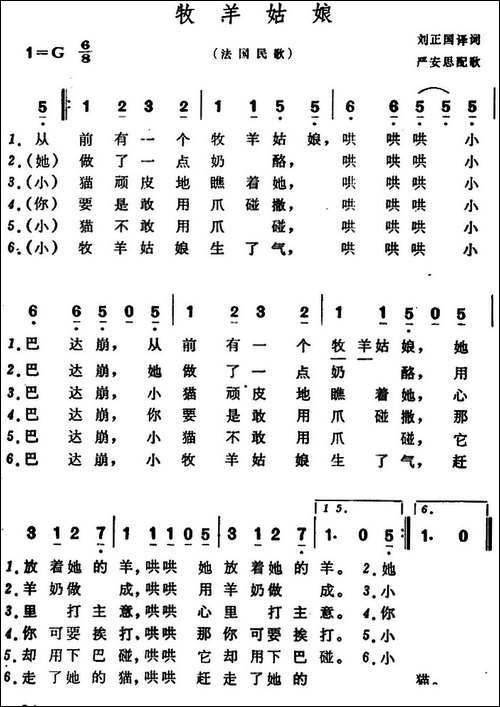 牧羊姑娘
1=G 6/8
(法国民歌)
刘正国译词
严安思配歌
5 1 2 3 2 1 1 5 5 6 6 5 5 5
1.从 前有一个牧羊姑娘,哄 哄哄 小
2.(她) 做了一点奶 酪, 哄 哄哄 小
3.(小) 猫顽皮地瞧着她, 哄 哄哄 小
4.(你) 要是敢用爪碰撒, 哄 哄哄 小
5.(小) 猫不敢用爪 碰, 哄 哄哄 小
6.(小) 牧羊姑娘生了气, 哄 哄哄 小
6 6 5 0 5 1 2 3 2 1 1 5 0 5
1.巴 达崩, 从 前有一个牧羊姑娘, 她
2.巴 达崩, 她 做了一点奶 酪, 用
3.巴 达崩, 小 猫顽皮地瞧着她, 心
4.巴 达崩, 你 要是敢用爪碰撒, 那
5.巴 达崩, 小 猫不敢用爪 碰, 它
6.巴 达崩, 小 牧羊姑娘生了气, 赶
15. 6.
3 1 2 7 1 1 1 0 0 5 3 1 2 7 1. 1 0 5 1. 1 0
1.放着她的羊,哄哄 她放着她的羊。 2.她
2.羊奶做 成,哄哄 用羊奶做 成。 3.小
3.里 打主意,哄哄 心里 打主意。 4.你
4.你可要挨打、哄哄 那你可要挨打。 5.小
5.却用下巴碰,哄哄 它却用下巴碰。 6.小
6.走了她的猫,哄哄 赶走了她的 猫。